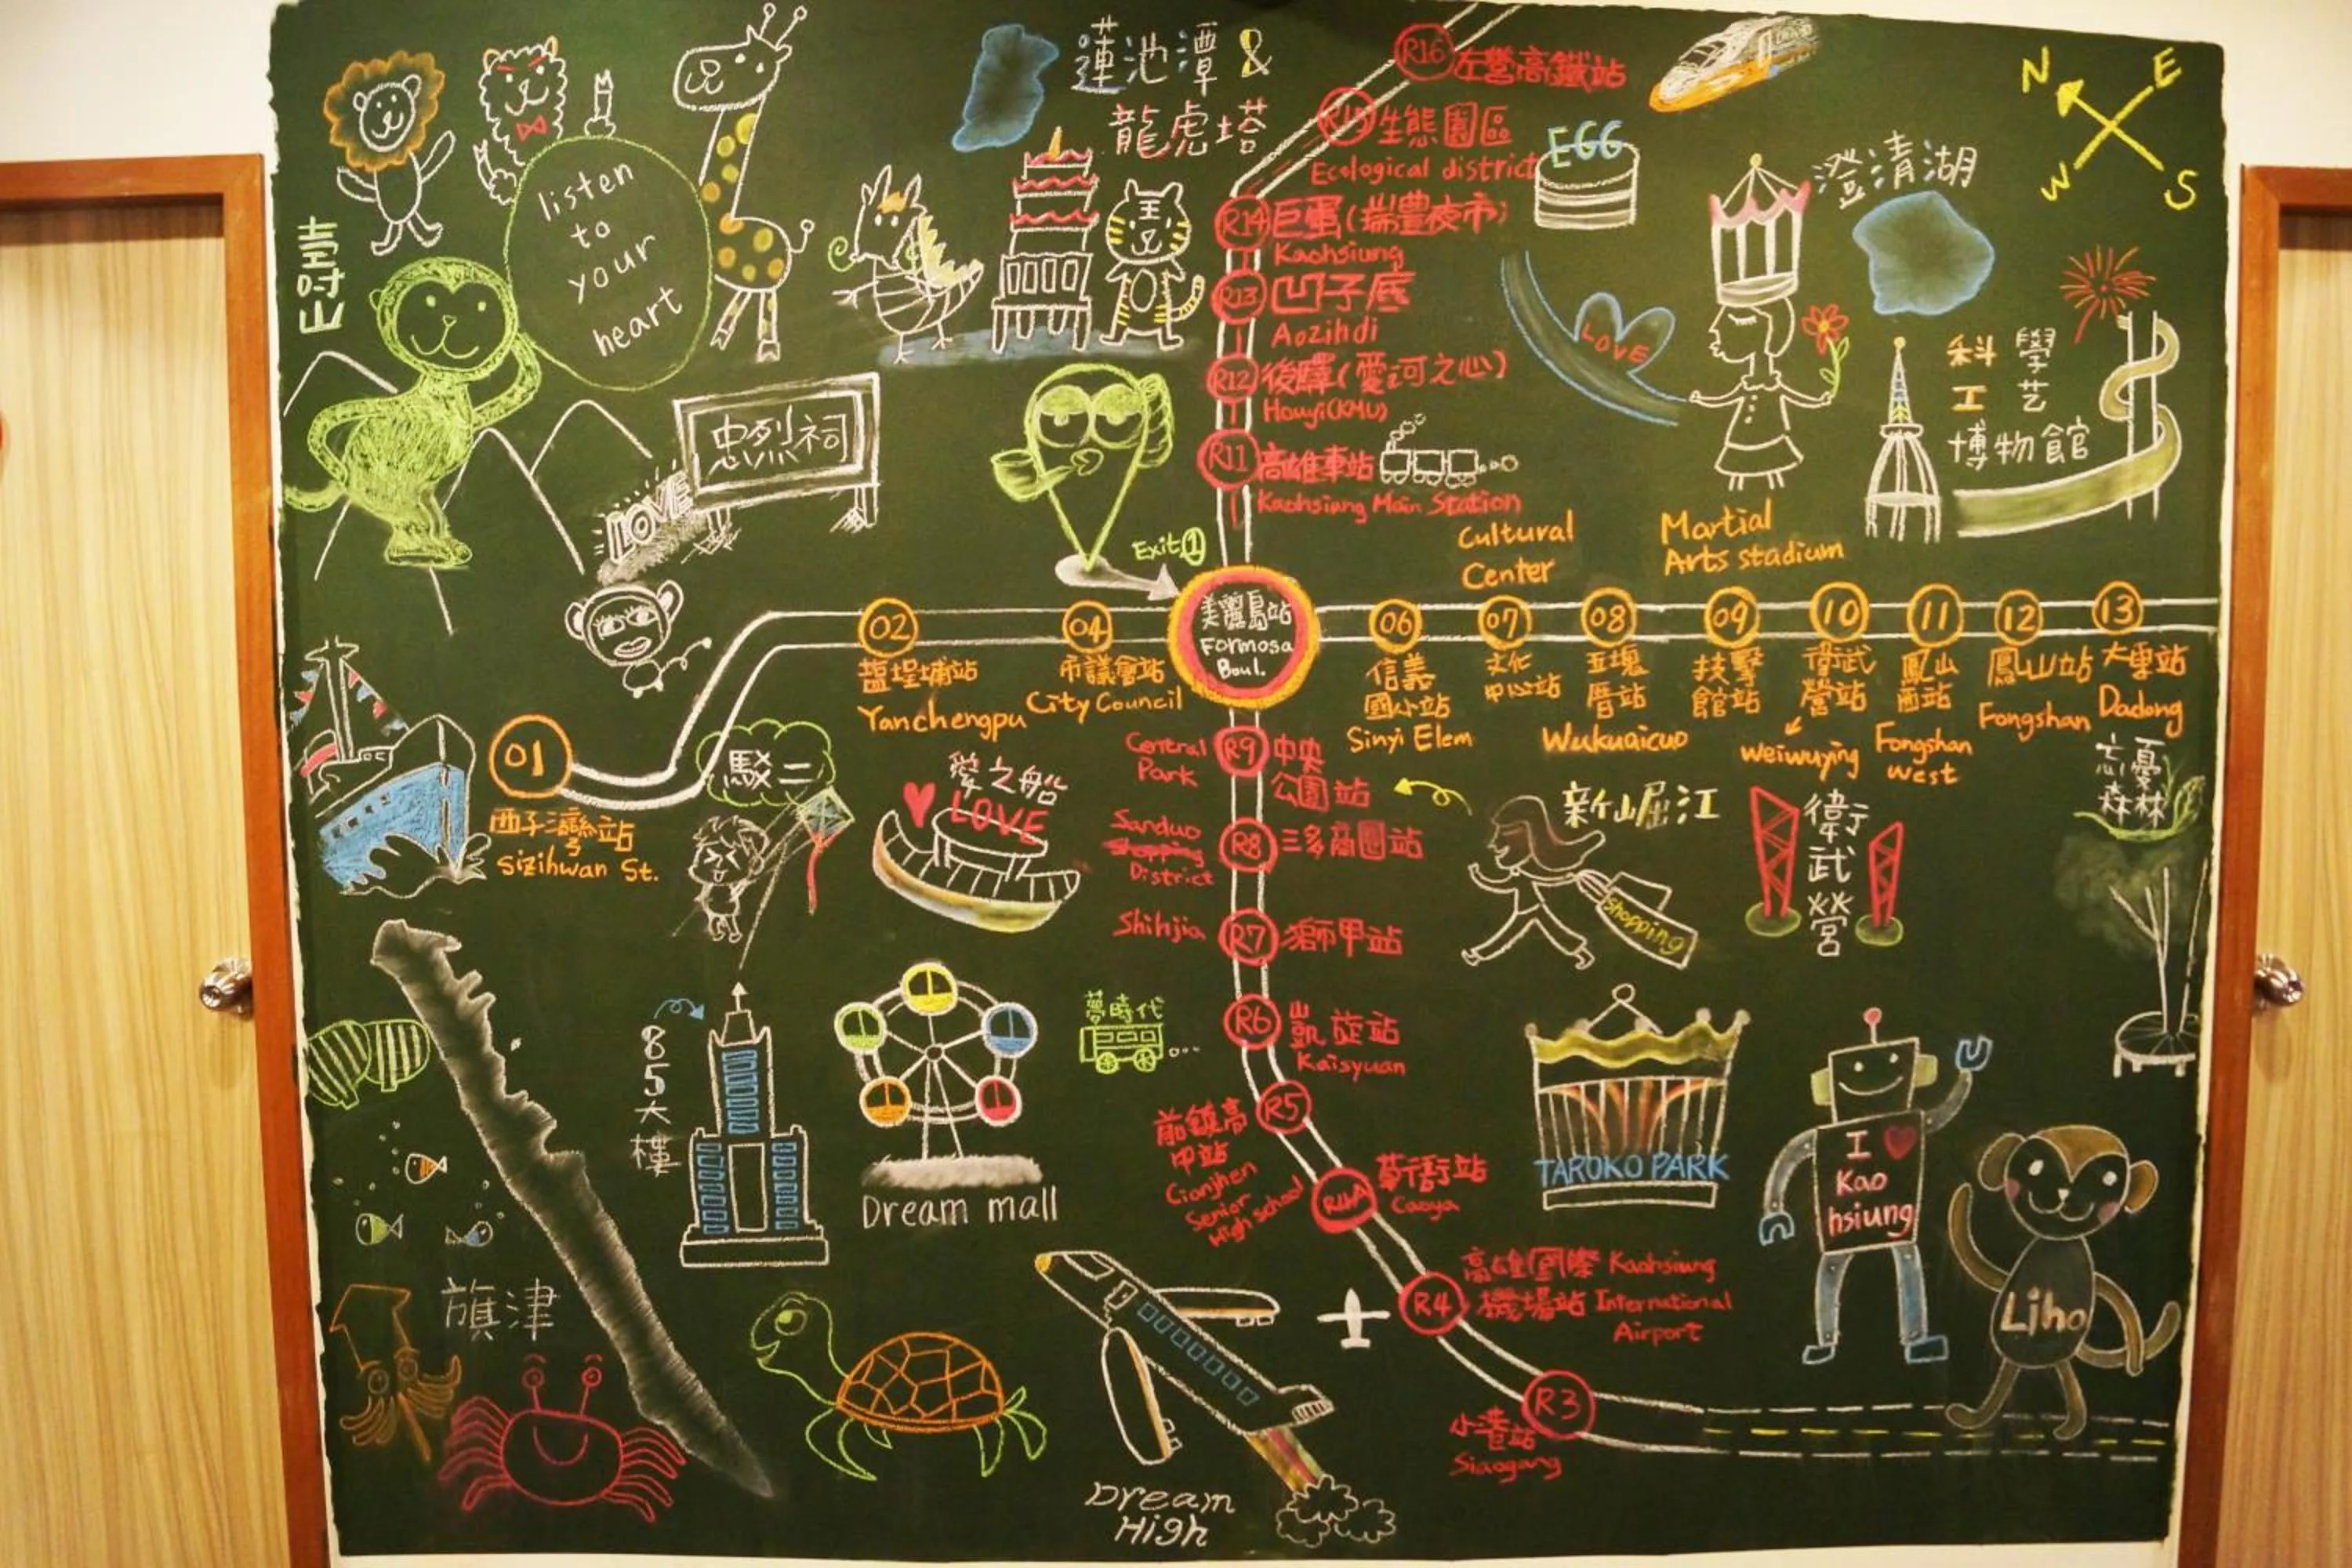 壽山
listen
to
your
heart
蓮池潭 &
龍虎塔
R16 左營高鐵站
R15 生態園區
Ecological district
R14 巨蛋(瑞豐夜市)
Kaohsiung
R13 凹子底
Aozihdi
R12 後驛(愛河之心)
Houyi(KMU)
R11 高雄車站
Kaohsiung Main Station
EGG
LOVE
澄清湖
N E
W S
科學
工艺
博物館
忠烈祠
LOVE
Exit 1
美麗島站
Formosa
Boul.
Cultural
Center
Martial
Arts stadium
01
西子灣站
Sizihwan St.
02
鹽埕埔站
Yanchengpu
04
市議會站
City Council
06
信義
國小站
Sinyi Elem
07
文化
中心站
08
五塊
厝站
Wukuaicuo
09
技擊
館站
10
衛武
營站
weiwuying
11
鳳山
西站
Fongshan
west
12
鳳山站
Fongshan
13
大東站
Dadong
駁二
愛之船
LOVE
Central
Park
R9 中央
公園站
Sanduo
Shopping
District
R8 三多商圈站
Shihjia
R7 獅甲站
R6 凱旋站
Kaisyuan
R5
前鎮高
中站
Cianjhen
Senior
High school
R4A 草衙站
Caoya
R4 高雄國際 Kaohsiung
機場站 International
Airport
R3
小港站
Siaogang
新堀江
shopping
衛武營
忘憂
森林
85大樓
夢時代
Dream mall
TAROKO PARK
I
Kao
hsiung
Liho
旗津
Dream
High